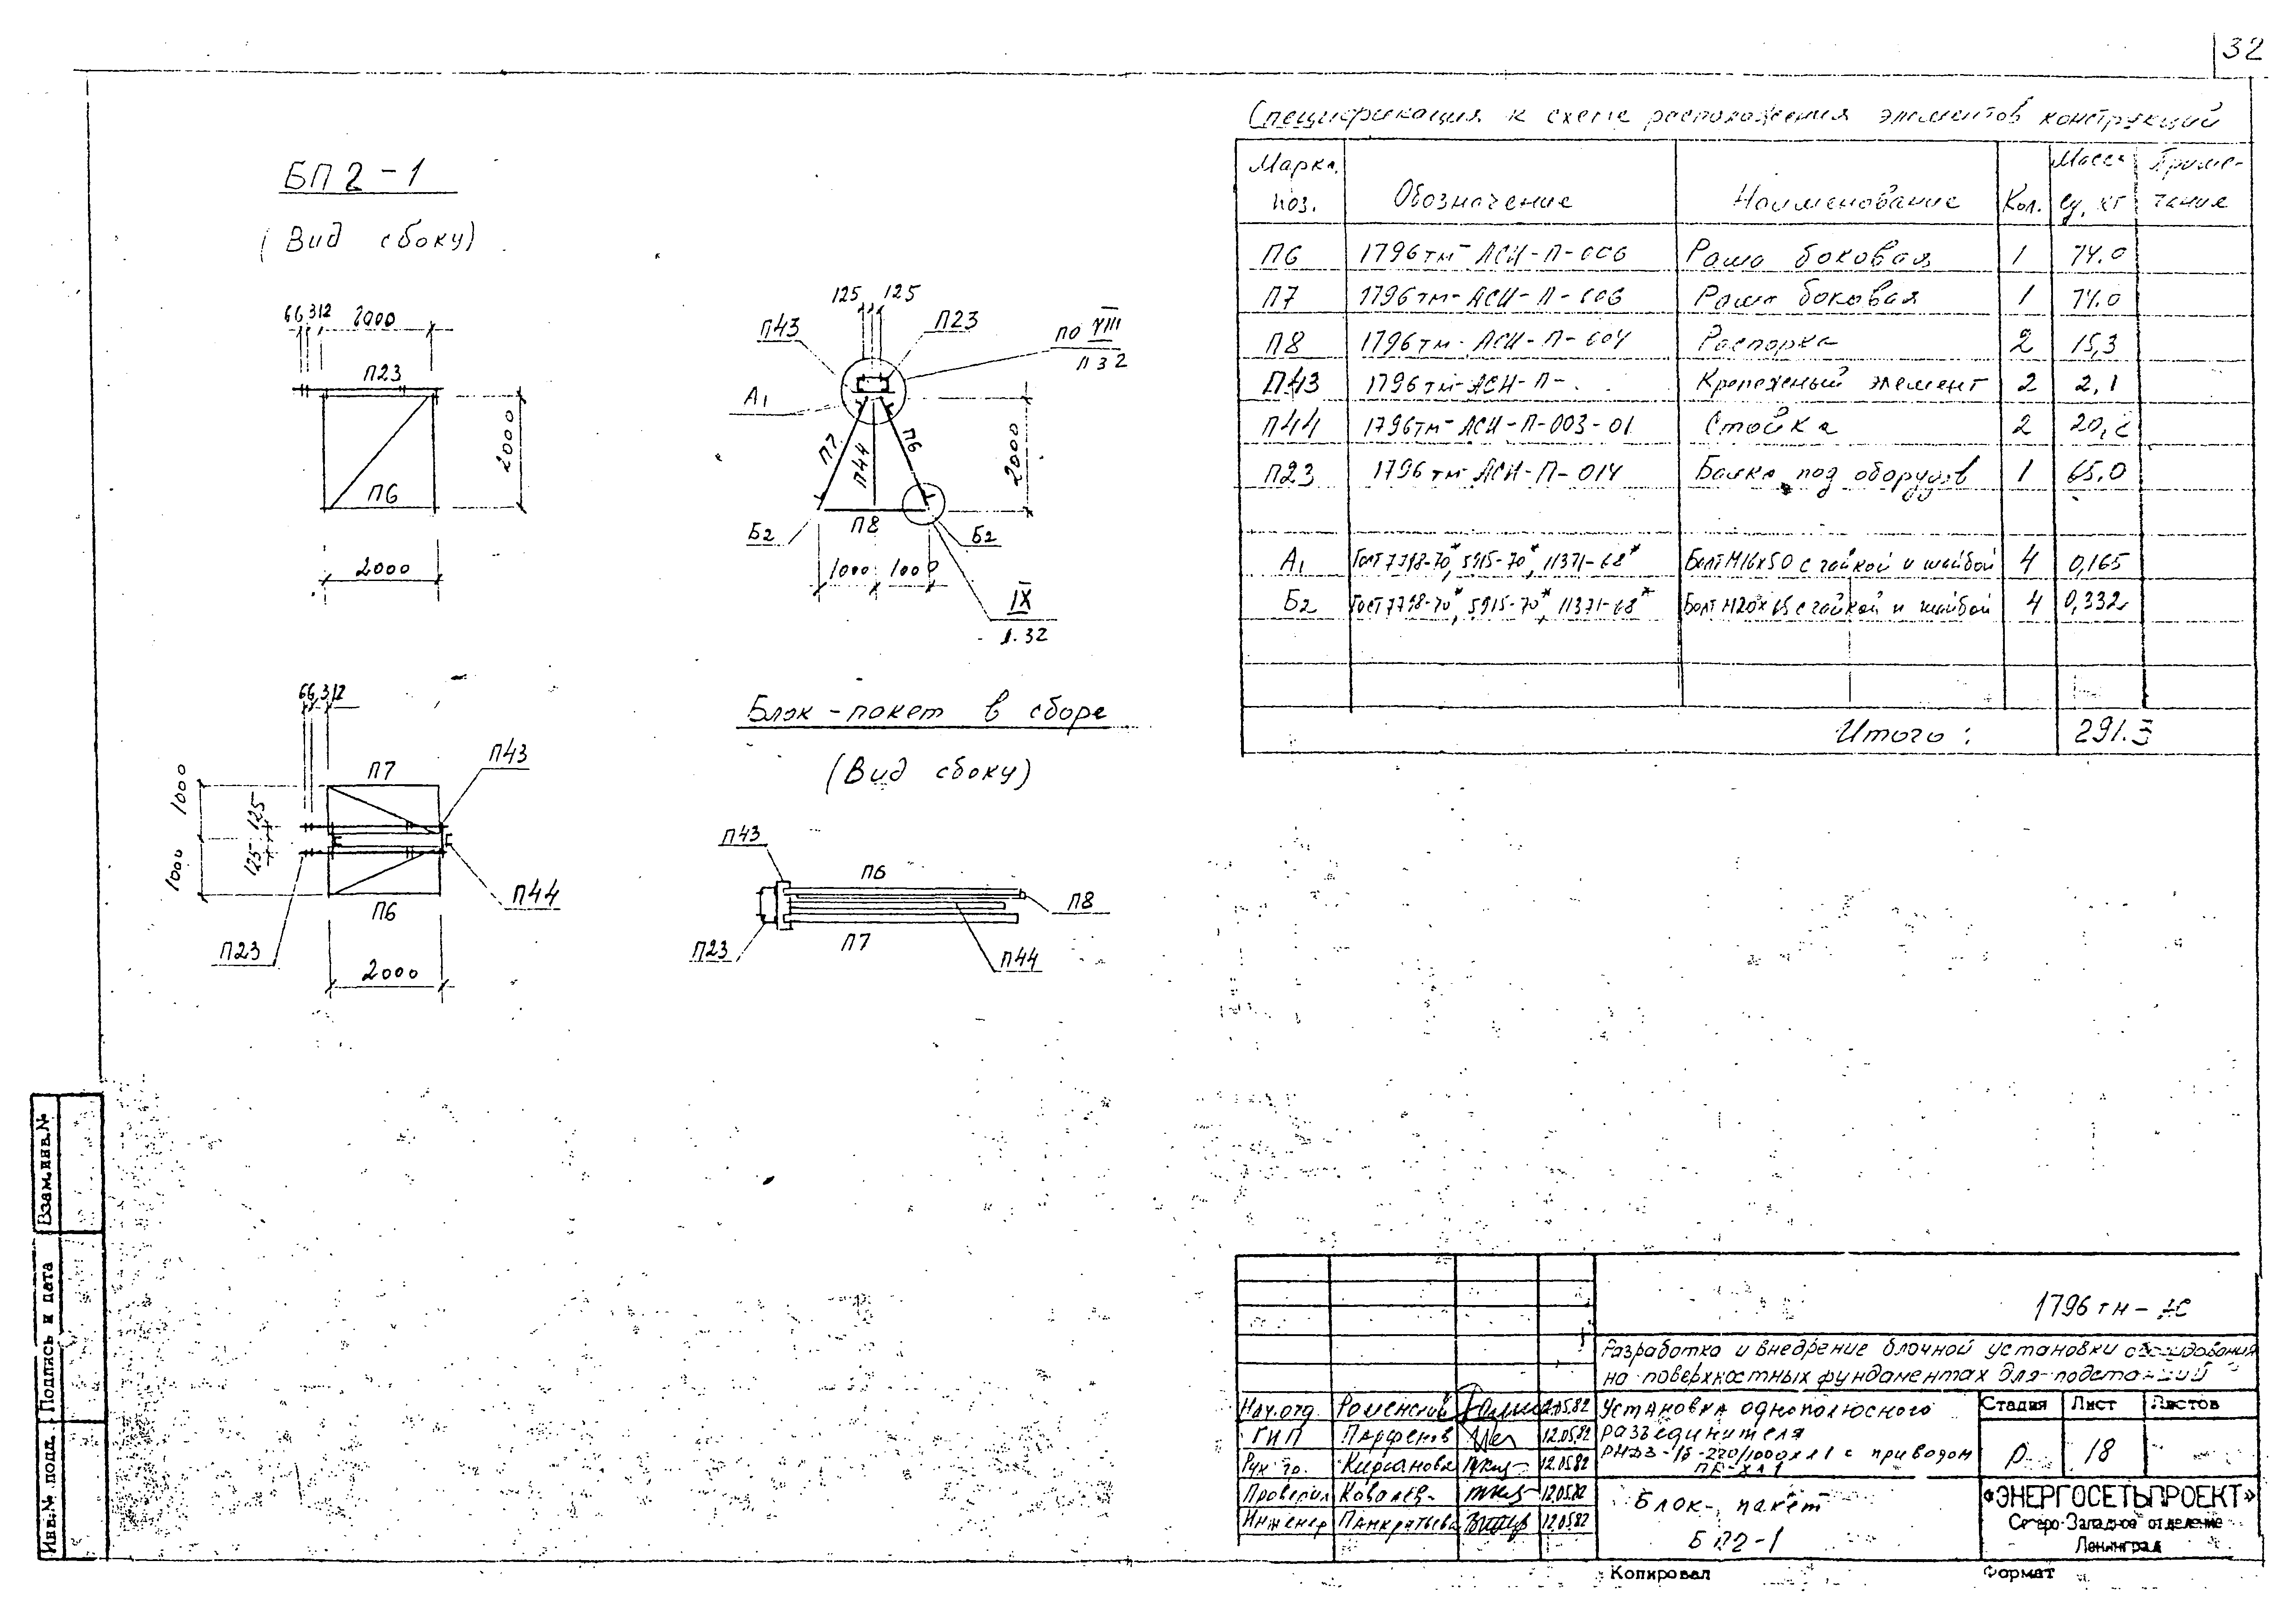 32
БП2-1
(Вид сбоку)
66 312 2000
П23
2000
П6
2000
125 125
П43 П23
по VIII
л 32
А1
П7 П44 П6
2000
Б2 П8 Б2
1000 1000
IX
л. 32
66 312
П7 П43
1000 125
1000 125
П6 П44
П23
2000
Блок-пакет в сборе
(Вид сбоку)
П43
П6
П8
П23 П7 П44
Спецификация к схеме расположения элементов конструкций
Марка, поз. Обозначение Наименование Кол. Масса ед, кг Примечание
П6 1796тм-АСИ-П-006 Рама боковая 1 74.0
П7 1796тм-АСИ-П-006 Рама боковая 1 74.0
П8 1796тм-АСИ-П-004 Распорка 2 15,3
П43 1796тм-АСИ-П- Крепежный элемент 2 2,1
П44 1796тм-АСИ-П-003-01 Стойка 2 20,2
П23 1796тм-АСИ-П-014 Балка под оборудов 1 65.0
А1 Гост 7798-70*, 5915-70*, 11371-68* Болт М16х50 с гайкой и шайбой 4 0,165
Б2 Гост 7798-70*, 5915-70*, 11371-68* Болт М20х65 с гайкой и шайбой 4 0,332
Итого: 291.3
Взам.инв.№
Подпись и дата
Инв.№ подл.
1796тм-АС
Разработка и внедрение блочной установки оборудования
на поверхностных фундаментах для подстанций
Нач.отд. Роменский 12.05.82
ГИП Парфенов 12.05.82
Рук гр. Кирсанова 12.05.82
Проверил Ковалев 12.05.82
Инженер Панкратьева 12.05.82
Установка однополюсного
разъединителя
РНДЗ-1б-220/1000ХЛ1 с приводом
Стадия Лист Листов
Р 18
Блок-пакет
БП2-1
«ЭНЕРГОСЕТЬПРОЕКТ»
Северо-Западное отделение
Ленинград
Копировал Формат